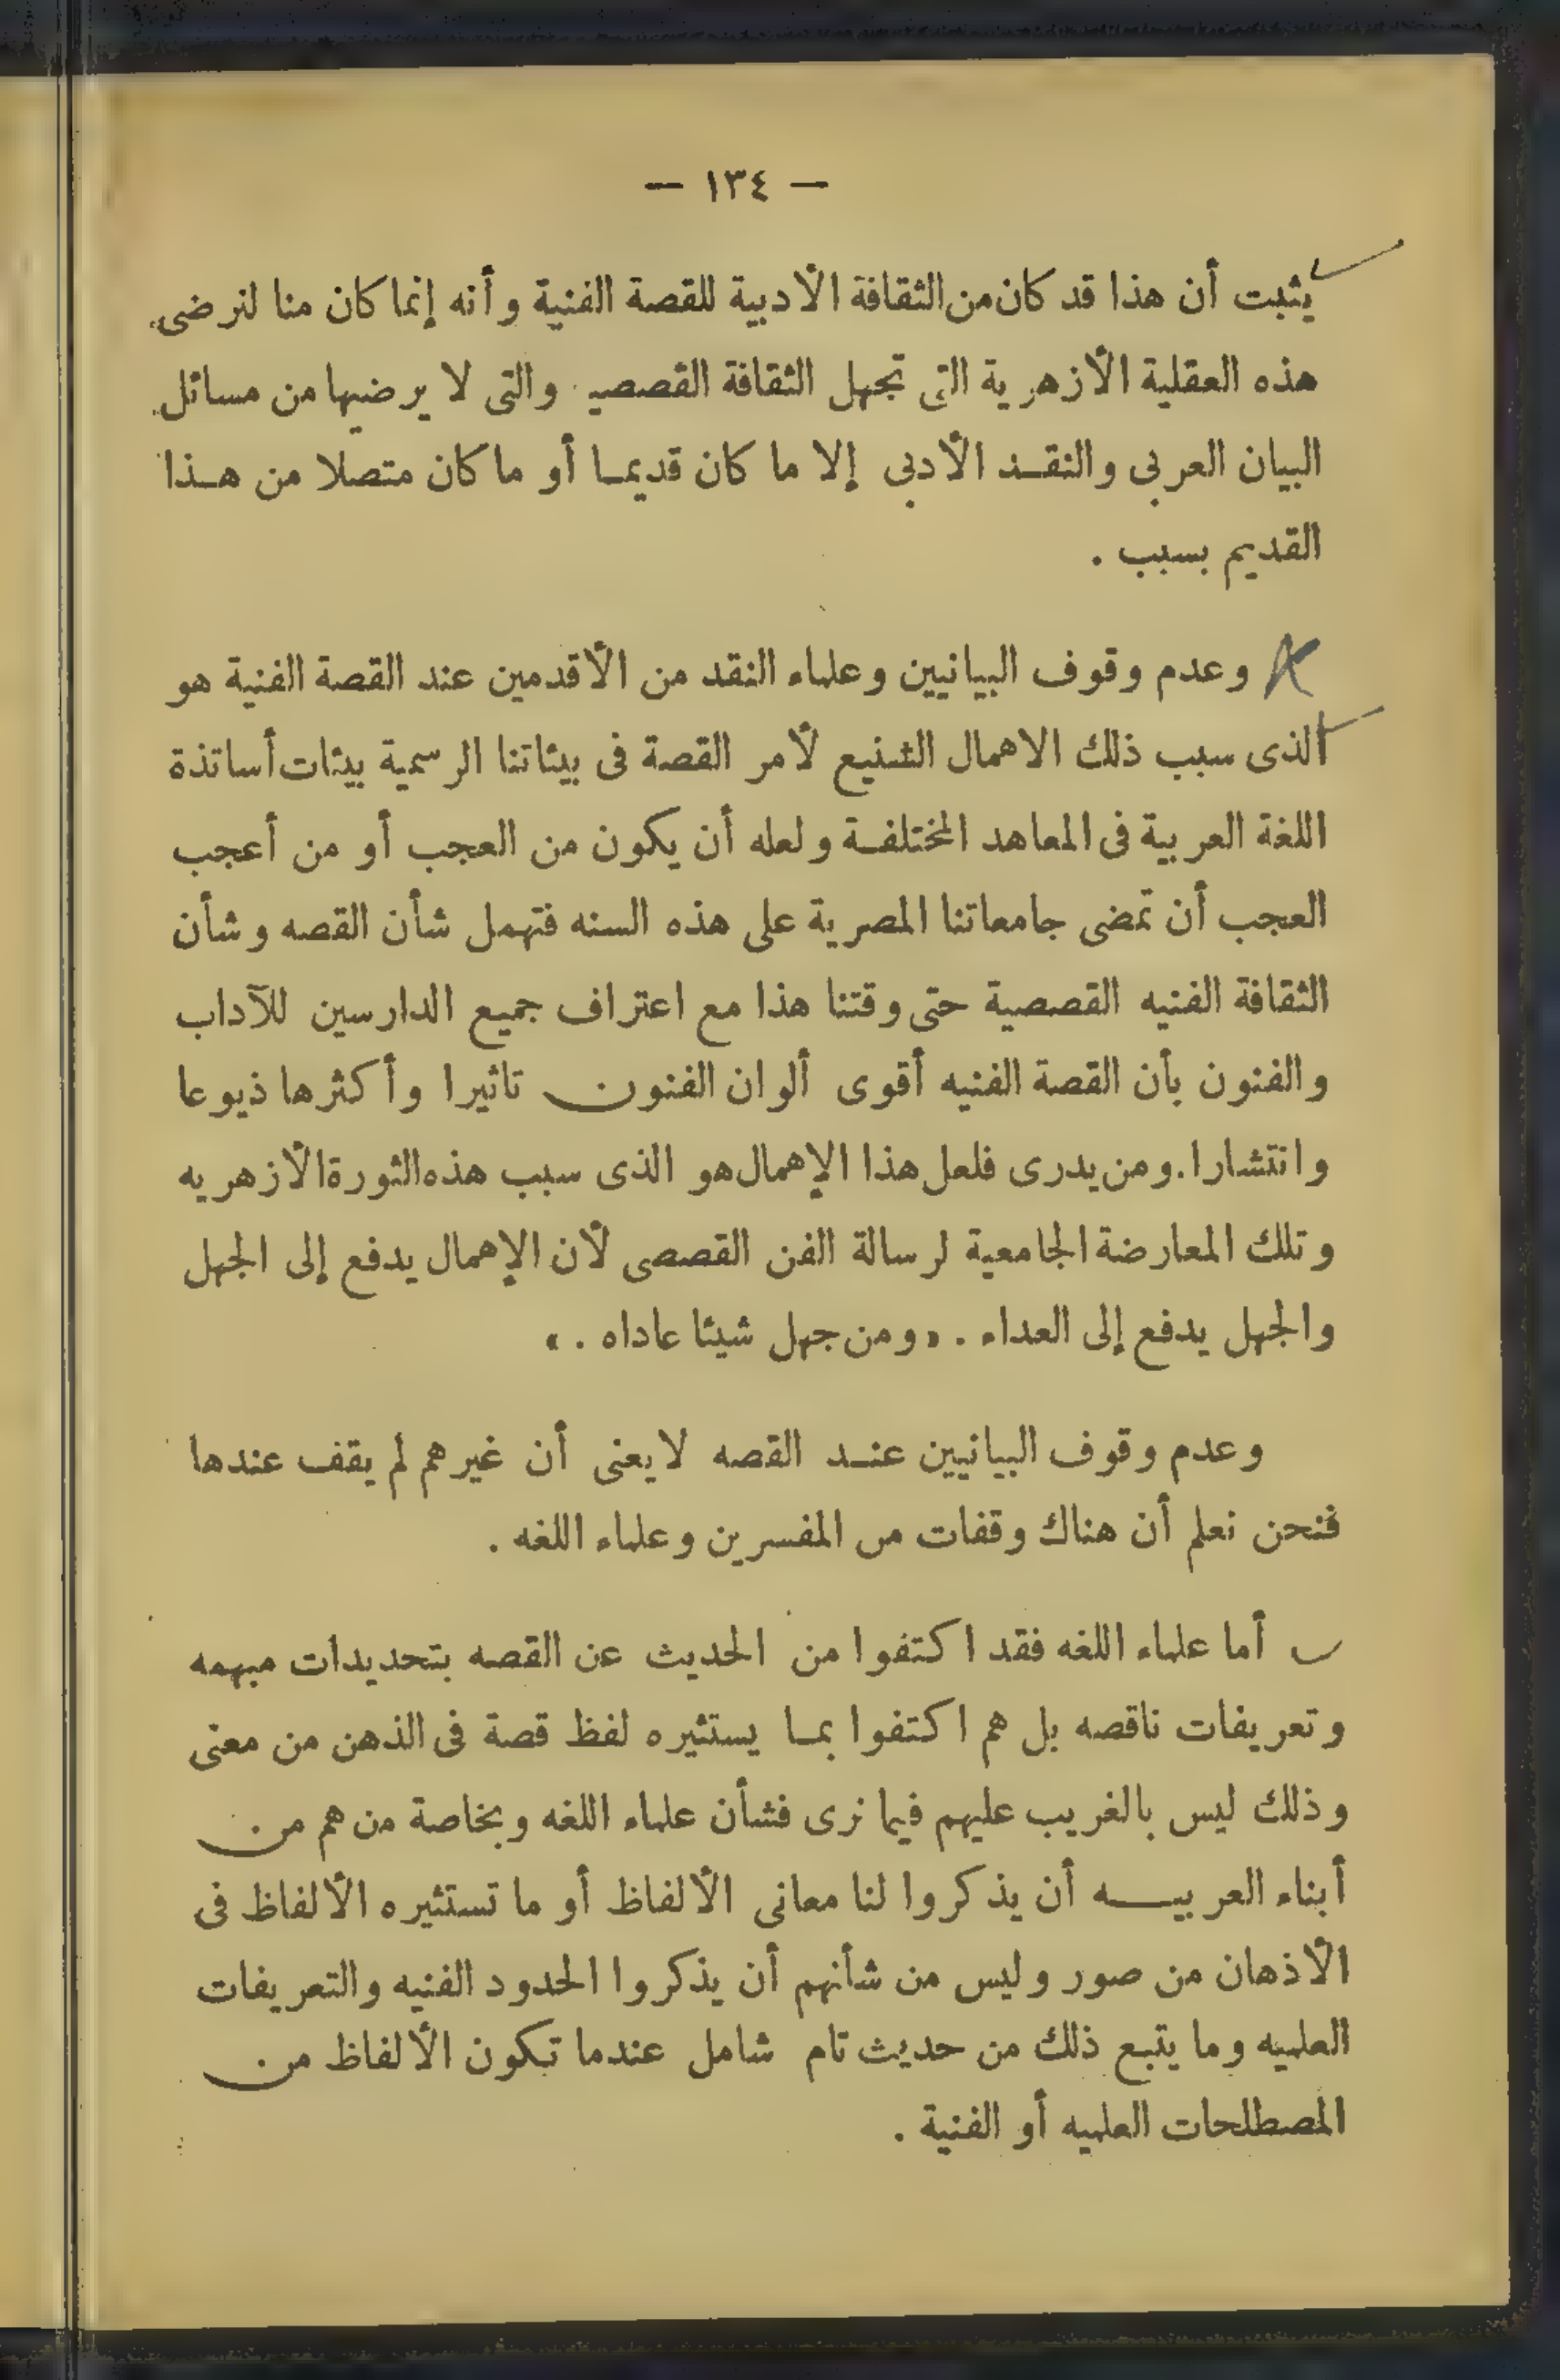 — ١٣٤ —
يثبت أن هذا قد كان من الثقافة الأدبية للقصة الفنية وأنه إنما كان منا لنرضى
هذه العقلية الأزهرية التى تجهل الثقافة القصصية والتى لا يرضيها من مسائل
البيان العربى والنقد الأدبى إلا ما كان قديما أو ما كان متصلا من هذا
القديم بسبب .
وعدم وقوف البيانيين وعلماء النقد من الأقدمين عند القصة الفنية هو
الذى سبب ذلك الاهمال الشنيع لأمر القصة فى بيئاتنا الرسمية بيئات أساتذة
اللغة العربية فى المعاهد المختلفة ولعله أن يكون من العجب أو من أعجب
العجب أن تمضى جامعاتنا المصرية على هذه السنه فتهمل شأن القصه وشأن
الثقافة الفنيه القصصية حتى وقتنا هذا مع اعتراف جميع الدارسين للآداب
والفنون بأن القصة الفنيه أقوى ألوان الفنون تاثيرا وأكثرها ذيوعا
وانتشارا . ومن يدرى فلعل هذا الإهمال هو الذى سبب هذه الثورة الأزهريه
وتلك المعارضة الجامعية لرسالة الفن القصصى لأن الإهمال يدفع إلى الجهل
والجهل يدفع إلى العداء . «ومن جهل شيئا عاداه . »
وعدم وقوف البيانيين عند القصه لا يعنى أن غيرهم لم يقف عندها
فنحن نعلم أن هناك وقفات من المفسرين وعلماء اللغه .
أما علماء اللغه فقد اكتفوا من الحديث عن القصه بتحديدات مبهمه
وتعريفات ناقصه بل هم اكتفوا بما يستثيره لفظ قصة فى الذهن من معنى
وذلك ليس بالغريب عليهم فيما نرى فشأن علماء اللغه وبخاصة من هم من
أبناء العربيه أن يذكروا لنا معانى الألفاظ أو ما تستثيره الألفاظ فى
الأذهان من صور وليس من شأنهم أن يذكروا الحدود الفنيه والتعريفات
العلميه وما يتبع ذلك من حديث تام شامل عندما تكون الألفاظ من
المصطلحات العلميه أو الفنية .